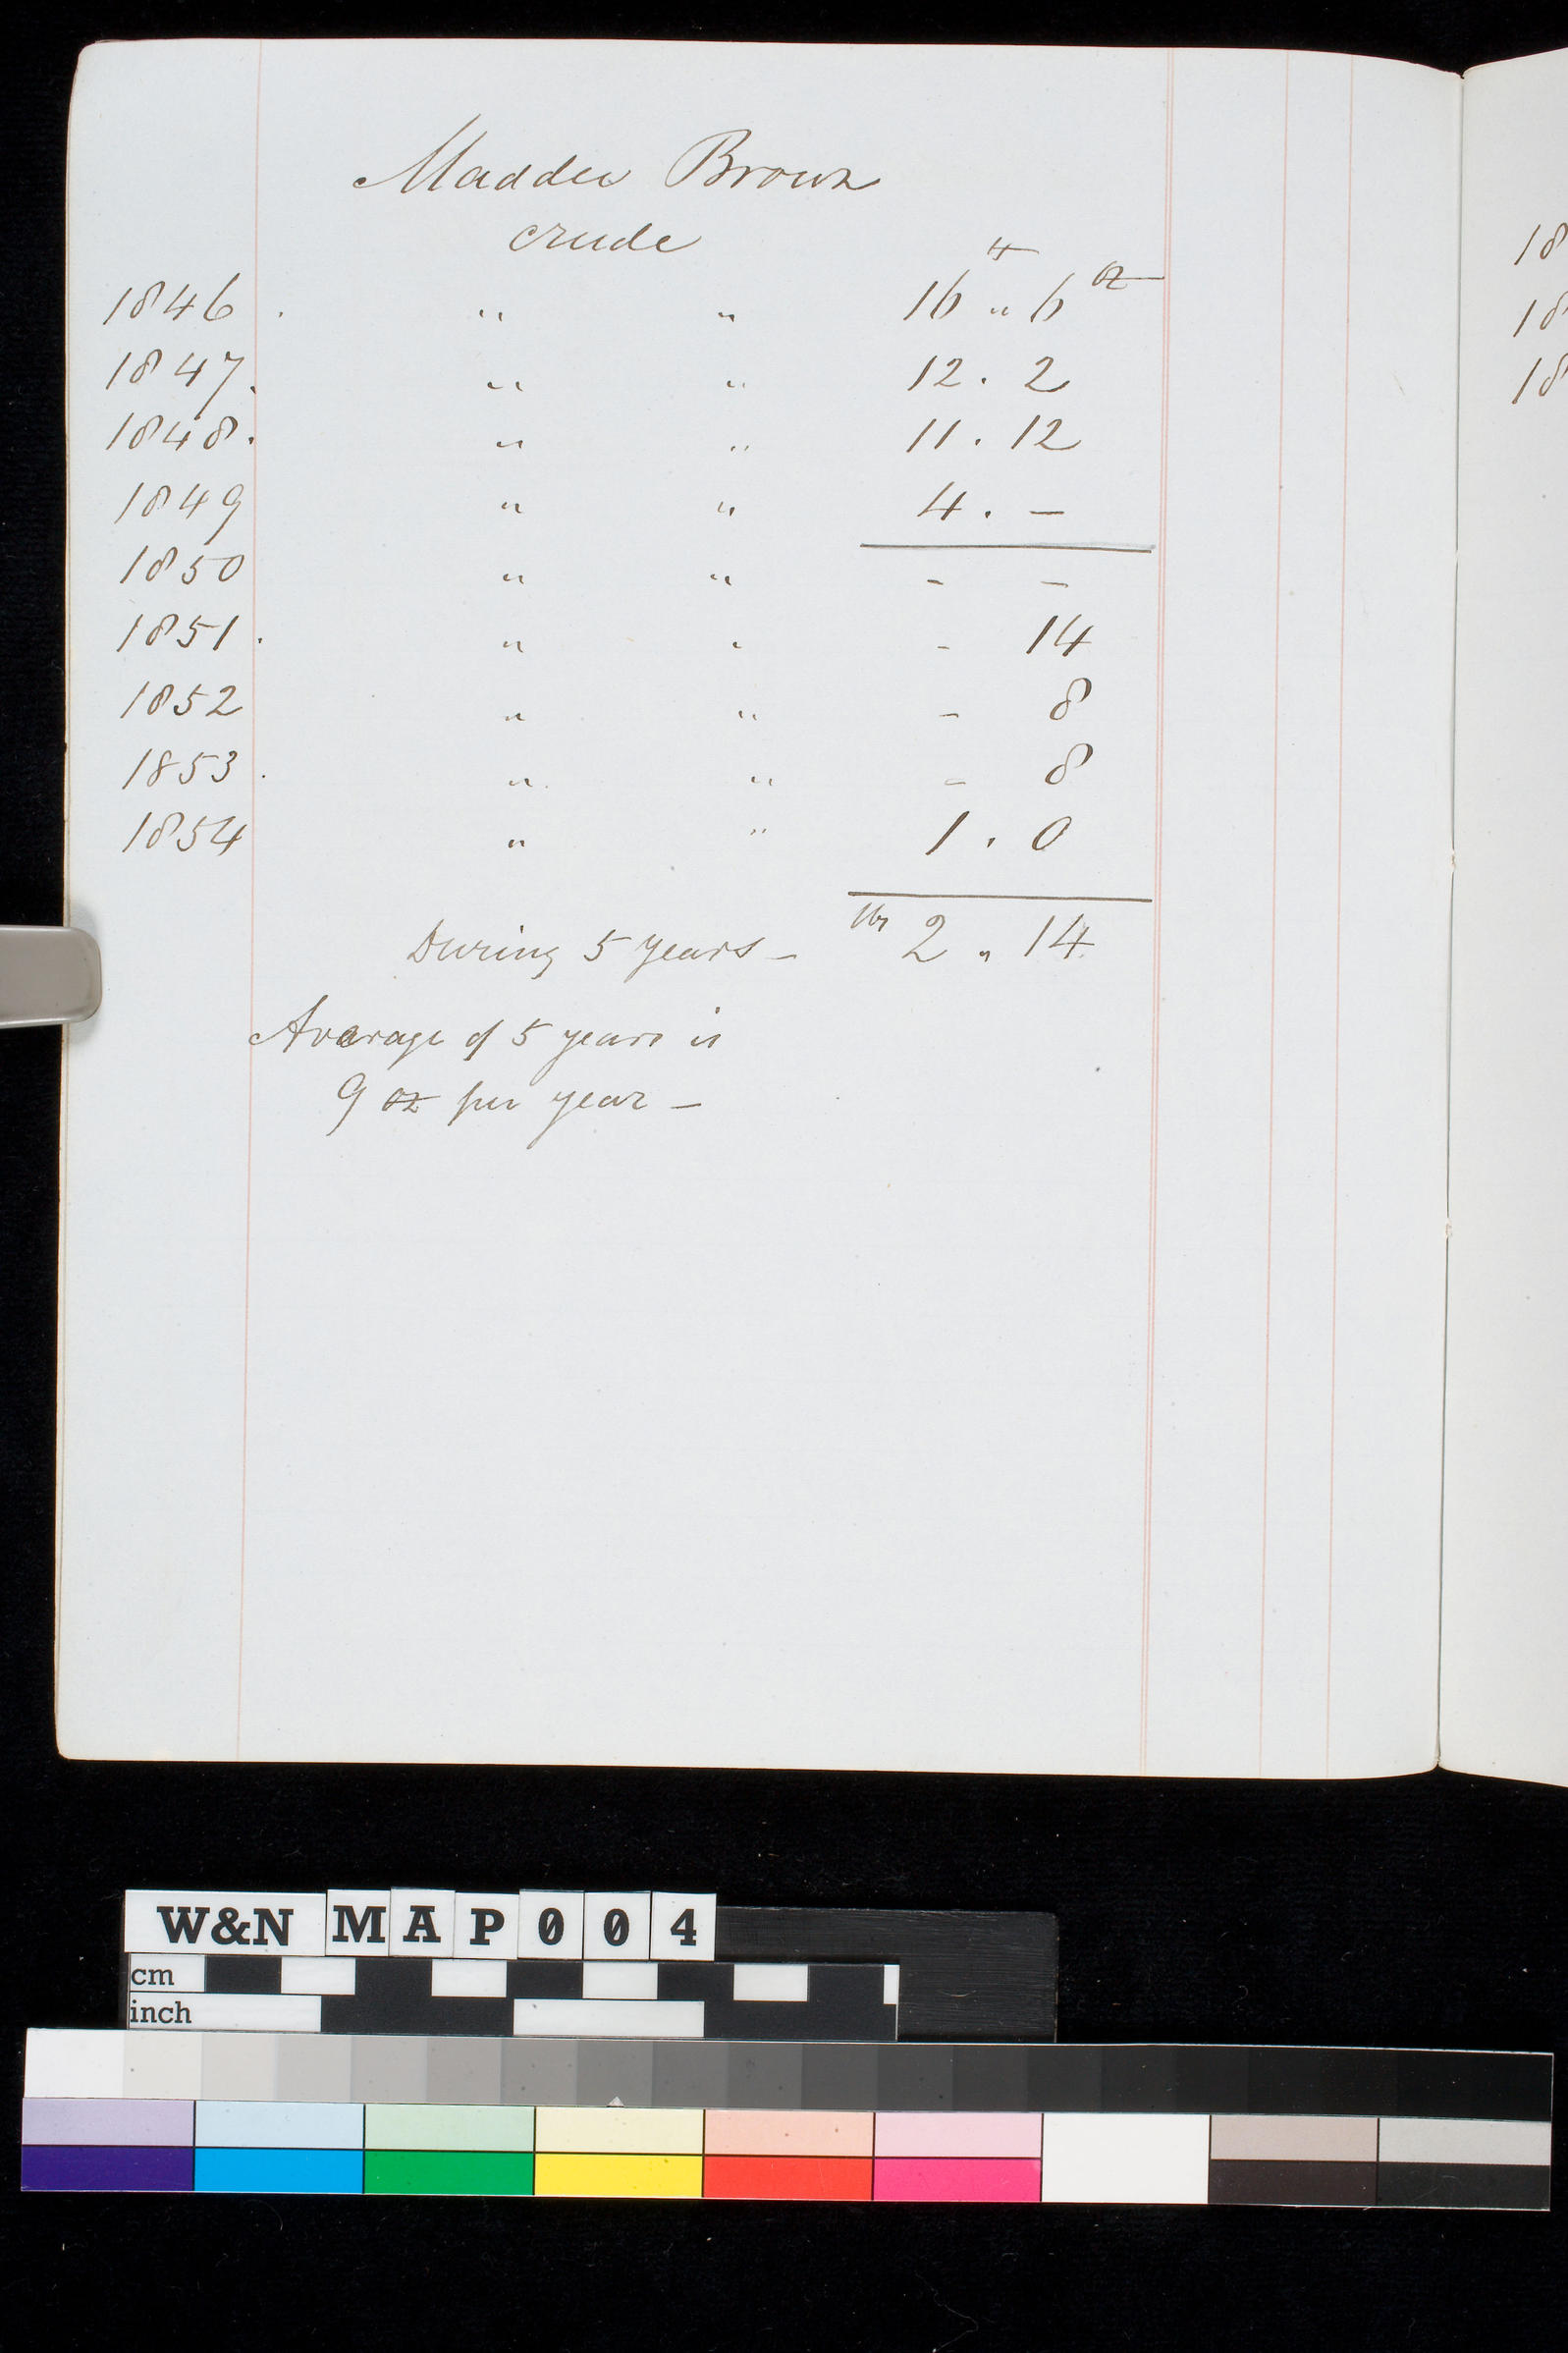 Madder Brown
crude
1846 . " " 16 " 6 oz
1847. " " 12 . 2
1848. " " 11 . 12
1849 " " 4 . –
1850 " " – –
1851 . " " – 14
1852 " " – 8
1853 . " " – 8
1854 " " 1 . 0
During 5 years – lbs 2 " 14
Average of 5 years is
9 oz per year –
18
18
18
W&N MAP004
cm
inch